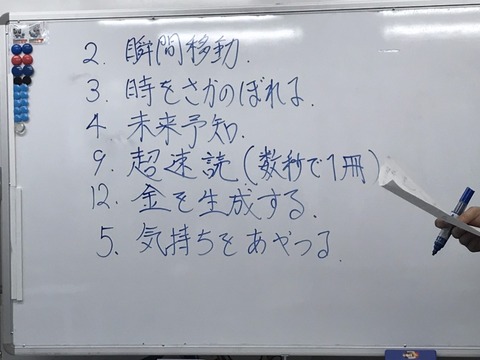 2. 瞬間移動.
3. 時をさかのぼれる.
4. 未来予知.
9. 超速読(数秒で1冊)
12. 金を生成する.
5. 気持ちをあやつる.